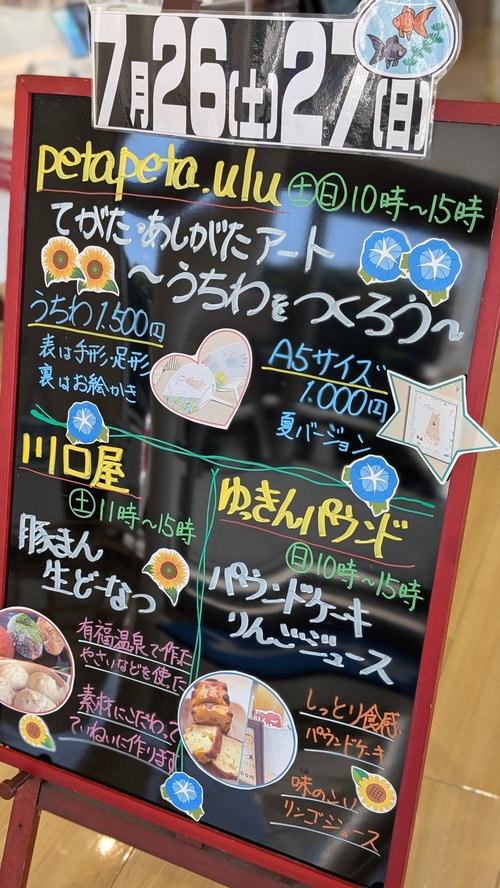 7月26(土)27(日)
petapeta.ulu ㊏㊐10時〜15時
てがた・あしがたアート
〜うちわをつくろう〜
うちわ1.500円
表は手形・足形
裏はお絵かき
A5サイズ
1.000円
夏バージョン
川口屋
㊏11時〜15時
豚まん
生どーなつ
有福温泉で作た
やさいなどを使た
素材にこだわって
ていねいに作ります
ゆっきんパウンド
㊐10時〜15時
パウンドケーキ
りんごジュース
しっとり食感
パウンドケーキ
味のこい
リンゴジュース